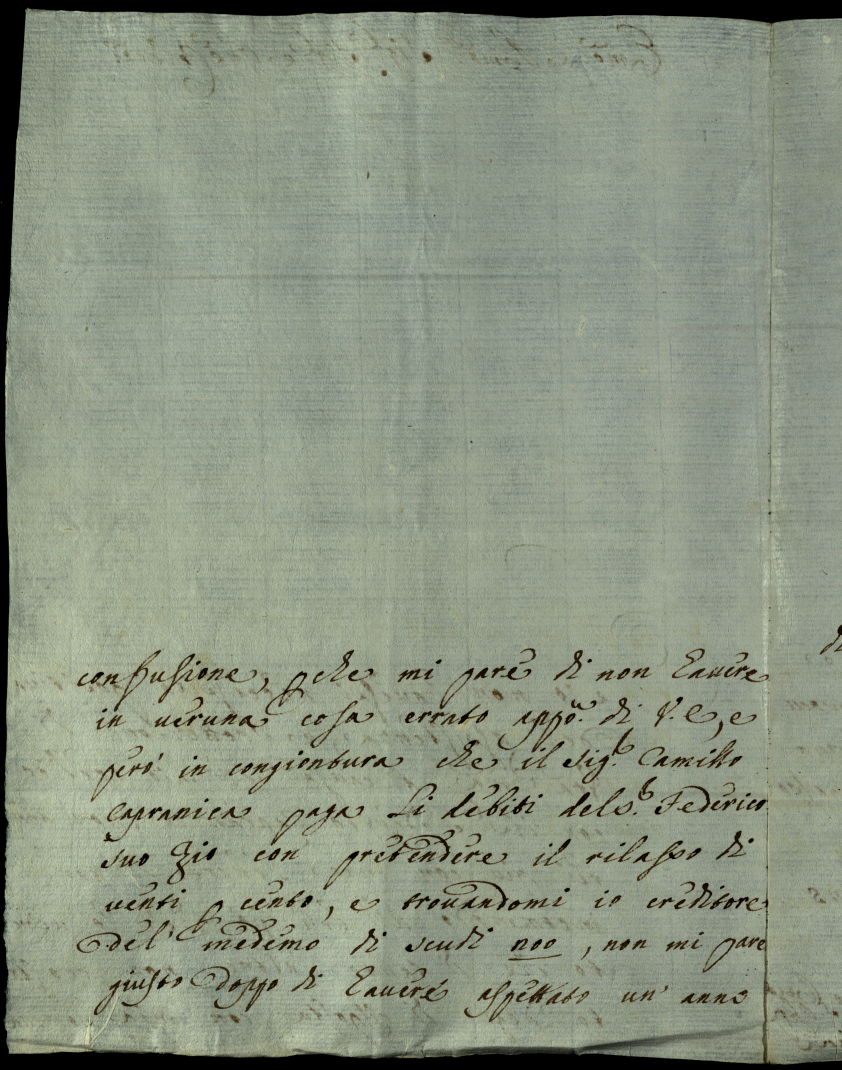 confusione, pche mi pare di non havere
in veruna cosa errato appo. di V. E, e
però in congiontura che il Sig.r Camillo
Capranica paga li debiti del S.r Federico
suo Zio con pretendere il rilasso di
venti p cento, e trovandomi io creditore
del' medemo di scudi noo, non mi pare
giusto doppo di havere aspettato un' anno